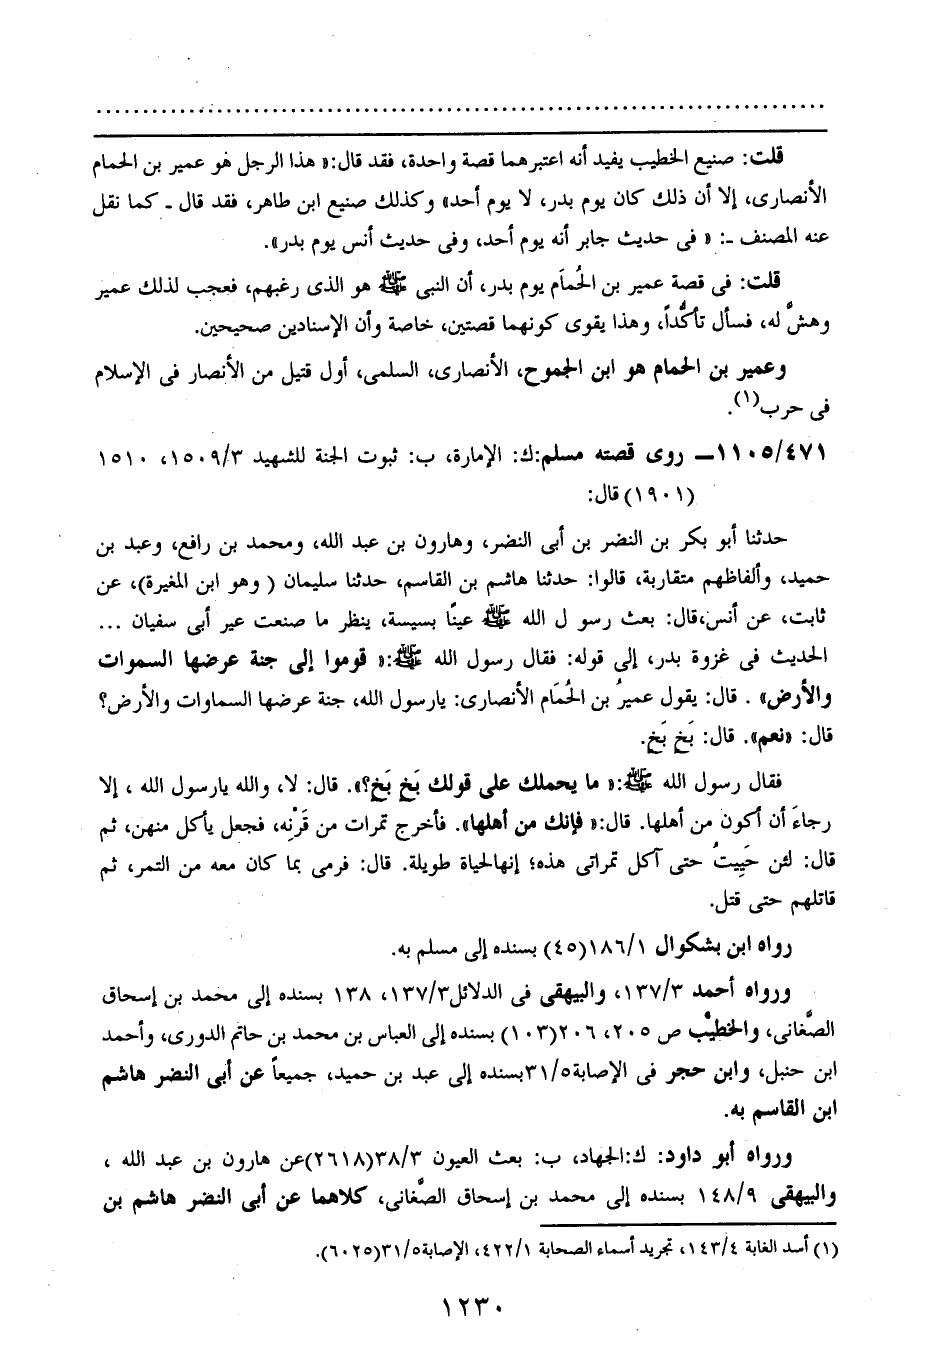 قلت: صنيع الخطيب يفيد أنه اعتبرهما قصة واحدة، فقد قال:« هذا الرجل هو عمير بن الحمام
الأنصارى، إلا أن ذلك كان يوم بدر، لا يوم أحد» وكذلك صنيع ابن طاهر، فقد قال ـ كما نقل
عنه المصنف ـ: « فى حديث جابر أنه يوم أحد، وفى حديث أنس يوم بدر».
قلت: فى قصة عمير بن الحُمام يوم بدر، أن النبى ﷺ هو الذى رغبهم، فعجب لذلك عمير
وهشَّ له، فسأل تأكُّداً، وهذا يقوى كونهما قصتين، خاصة وأن الإسنادين صحيحين.
وعمير بن الحمام هو ابن الجموح، الأنصارى، السلمى، أول قتيل من الأنصار فى الإسلام
فى حرب(١).
١١٠٥/٤٧١ـ روى قصته مسلم:ك: الإمارة، ب: ثبوت الجنة للشهيد ١٥٠٩/٣، ١٥١٠
(١٩٠١) قال:
حدثنا أبو بكر بن النضر بن أبى النضر، وهارون بن عبد الله، ومحمد بن رافع، وعبد بن
حميد، وألفاظهم متقاربة، قالوا: حدثنا هاشم بن القاسم، حدثنا سليمان ( وهو ابن المغيرة)، عن
ثابت، عن أنس،قال: بعث رسو ل الله ﷺ عينًا بسيسة، ينظر ما صنعت عير أبى سفيان ...
الحديث فى غزوة بدر، إلى قوله: فقال رسول الله ﷺ:« قوموا إلى جنة عرضها السموات
والأرض» . قال: يقول عميرُ بن الحُمَام الأنصارى: يارسول الله، جنة عرضها السماوات والأرض؟
قال: «نعم». قال: بَخ بَخ.
فقال رسول الله ﷺ:« ما يحملك على قولك بَخ بَخ؟». قال: لا، والله يارسول الله ، إلا
رجاءَ أن أكون من أهلها. قال:« فإنك من أهلها». فأخرج تمرات من قَرْنِه، فجعل يأكل منهن، ثم
قال: لئن حَيِيتُ حتى آكل تمراتى هذه؛ إنهالحياة طويلة. قال: فرمى بما كان معه من التمر، ثم
قاتلهم حتى قتل.
رواه ابن بشكوال ١٨٦/١(٤٥) بسنده إلى مسلم به.
ورواه أحمد ١٣٧/٣، والبيهقى فى الدلائل١٣٧/٣، ١٣٨ بسنده إلى محمد بن إسحاق
الصَّغانى، والخطيب ص ٢٠٥، ٢٠٦(١٠٣) بسنده إلى العباس بن محمد بن حاتم الدورى، وأحمد
ابن حنبل، وابن حجر فى الإصابة٣١/٥بسنده إلى عبد بن حميد، جميعاً عن أبى النضر هاشم
ابن القاسم به.
ورواه أبو داود: ك:الجهاد، ب: بعث العيون ٣٨/٣(٢٦١٨)عن هارون بن عبد الله ،
والبيهقى ١٤٨/٩ بسنده إلى محمد بن إسحاق الصَّغانى، كلاهما عن أبى النضر هاشم بن
(١) أسد الغابة ١٤٣/٤، تجريد أسماء الصحابة ٤٢٢/١، الإصابة٣١/٥(٦٠٢٥).
١٢٣٠